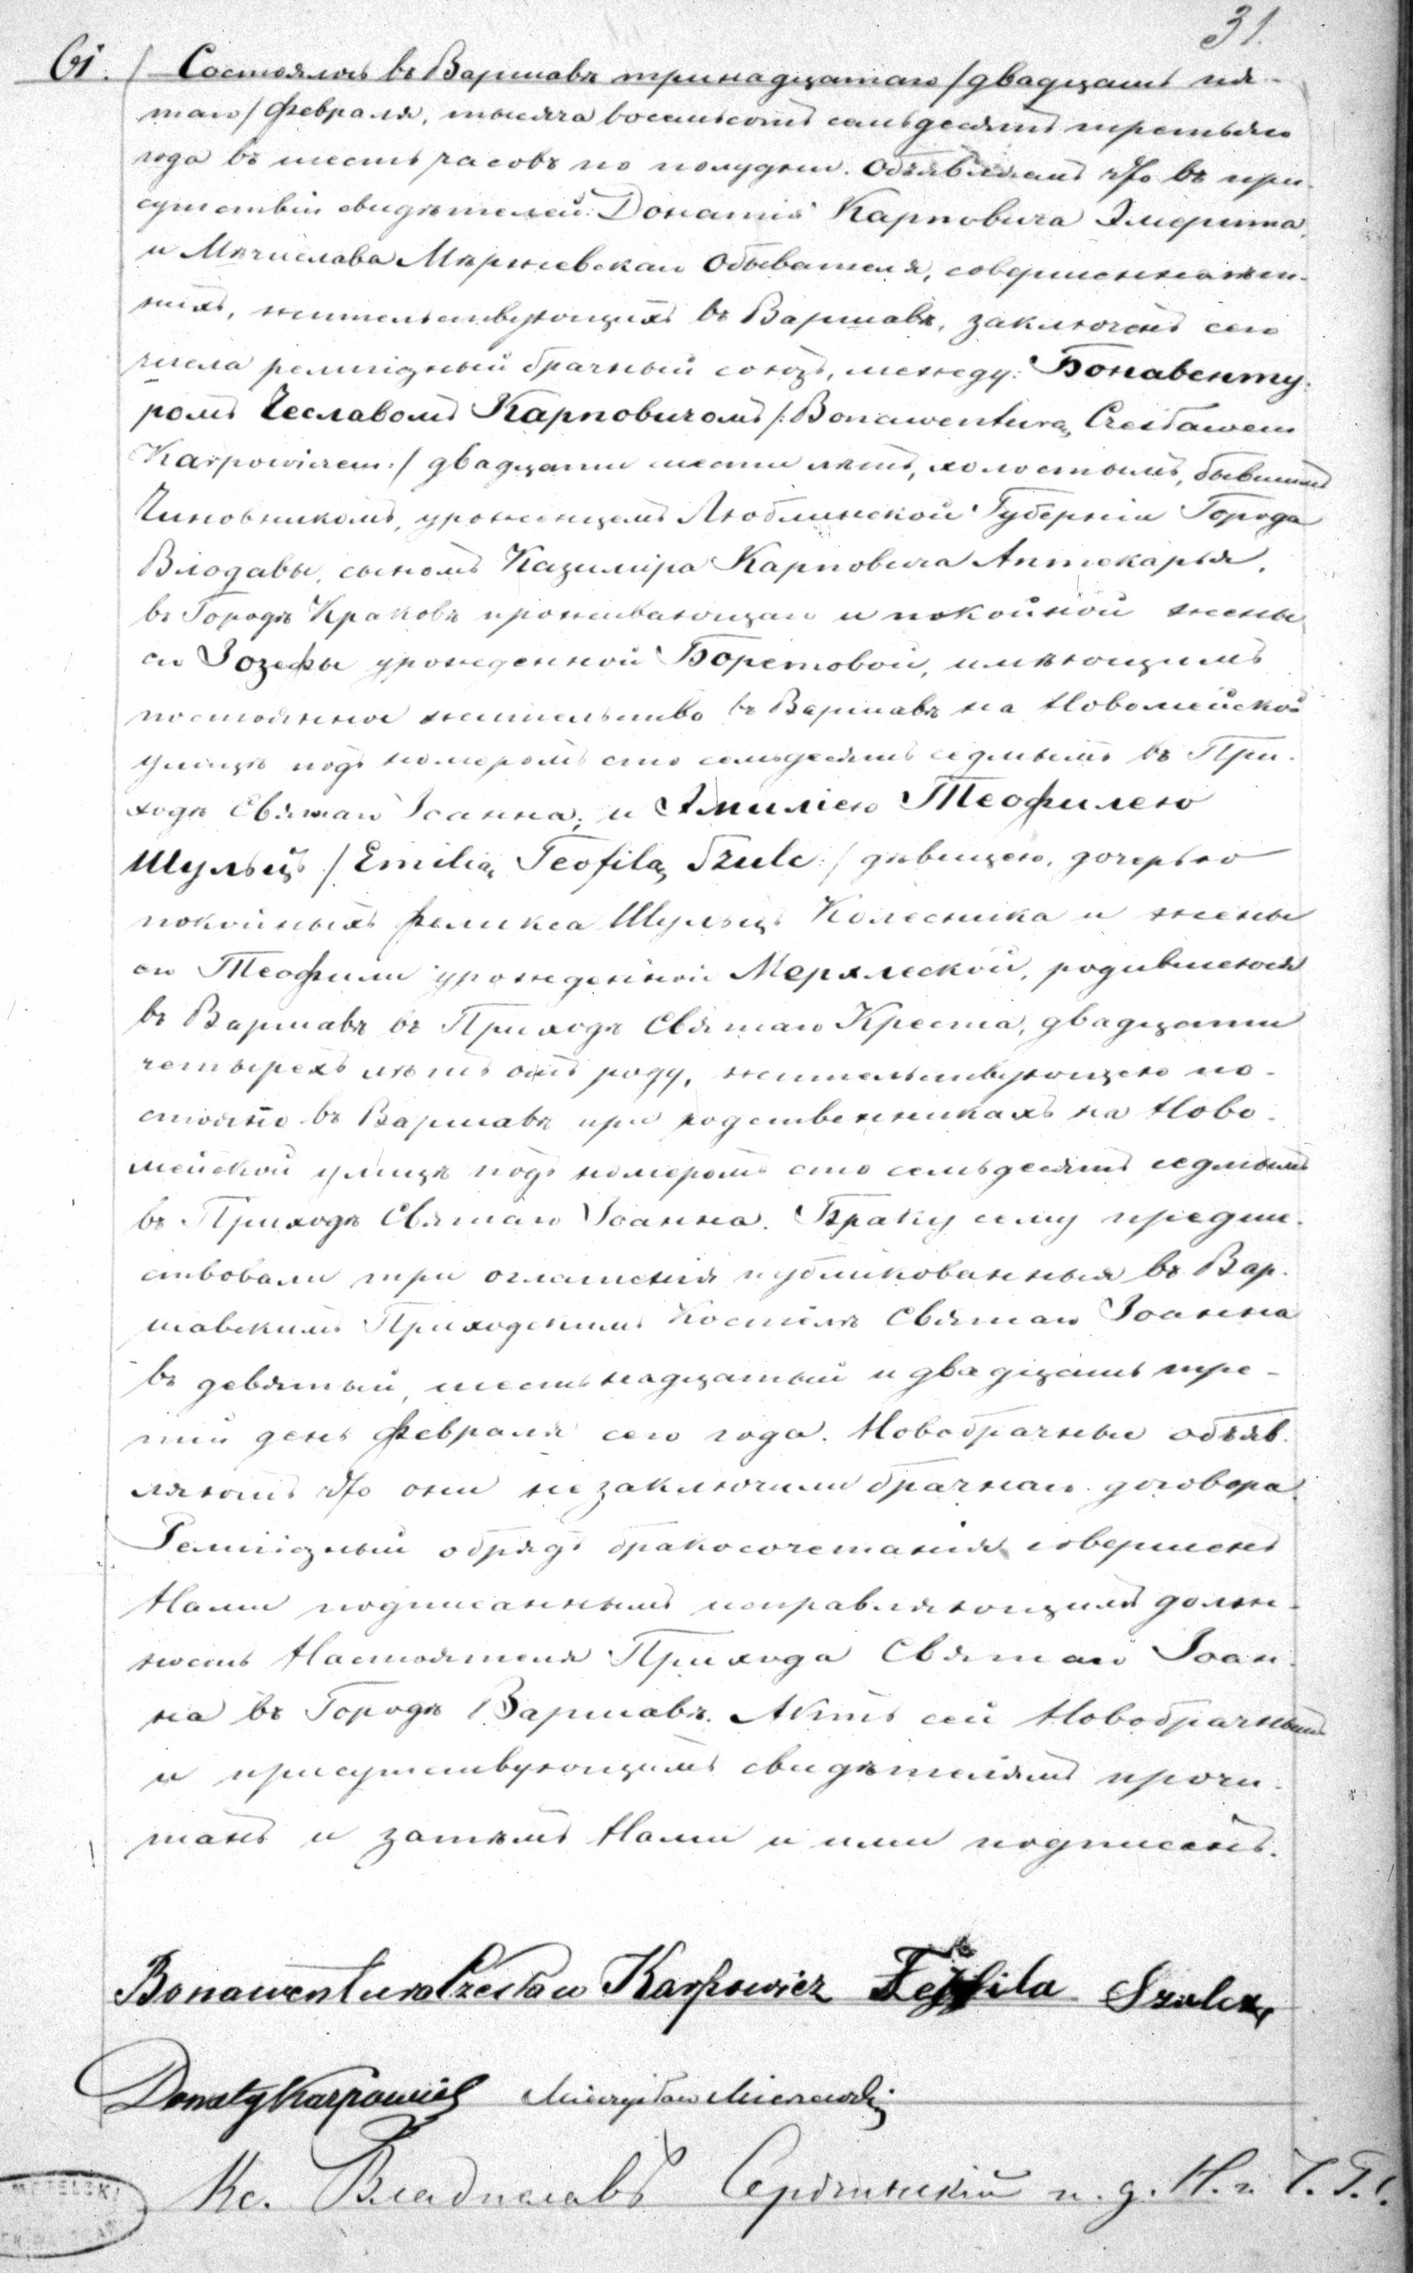 31.
61. / Состоялось въ Варшавѣ тринадцатаго /двадцать пя-
таго/ Февраля, тысяча восемьсотъ семьдесятъ третьяго
года въ шесть часовъ по полудни. Объявляемъ что въ при-
сутствіи свидѣтелей: Донатія Карповича Эмерита,
и Мѣчислава Мѣржевскаго Обывателя, совершеннолѣт-
нихъ, жительствующихъ въ Варшавѣ, заключенъ сего
числа религіозный брачный союзъ, между: Бонавенту-
ромъ Чеславомъ Карповичомъ /:Bonawenturą Czesławem
Karpowiczem:/ двадцати шести лѣтъ, холостымъ, бывшимъ
Чиновникомъ, уроженцемъ Люблинской Губерніи Города
Влодавы, сыномъ Казиміра Карповича Аптекарья,
въ Городѣ Краковѣ проживающаго и покойной жены
его Іозефы урожденной Боретовой, имѣющимъ
постоянное жительство въ Варшавѣ на Новомейской
улицѣ подъ номеромъ сто семьдесятъ седмымъ въ При-
ходѣ Святаго Іоанна; и Эмиліею Теофилею
Шульцъ /Emilią Teofilą Szulc:/ дѣвицею, дочерью
покойныхъ Феликса Шульцъ Колесника и жены
его Теофили урожденной
родившеюся
въ Варшавѣ въ Приходѣ Святаго Креста, двадцати
четырехъ лѣтъ отъ роду, жительствующею по-
стоянно въ Варшавѣ при родственникахъ на Ново-
мейской улицѣ подъ номеромъ сто семьдесятъ седмымъ
въ Приходѣ Святаго Іоанна. Браку сему предше-
ствовали три оглашенія публикованныя въ Вар-
шавскимъ Приходскимъ Костелѣ Святаго Іоанна
въ девятый, шестьнадцатый и двадцать тре-
тій день Февраля сего года. Новобрачные объяв-
ляютъ что они не заключили брачнаго договора.
Религіозный обрядъ бракосочетанія совершенъ
Нами подписаннымъ исправляющимъ долж-
ность Настоятеля Прихода Святаго Іоан-
на въ Городѣ Варшавѣ. Актъ сей Новобрачнымъ
и присутствующимъ свидѣтелямъ прочи-
танъ и затѣмъ Нами и ими подписанъ.
Bonawentura Czesław Karpowicz Teofila Szulc
Donaty Karpowicz Mieczysław Mierzewski
Кс. Владиславъ и. д. Н.